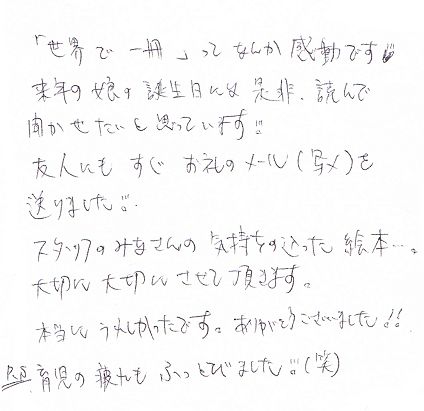 「世界で一冊」ってなんか感動です!!
来年の娘の誕生日には是非、読んで
聞かせたいと思っています!!
友人にもすぐお礼のメール(写メ)を
送りました!!
スタッフのみなさんの気持ちの込った絵本…。
大切に大切にさせて頂きます。
本当にうれしかったです。ありがとうございました!!
P.S. 育児の疲れもふっとびました!!(笑)